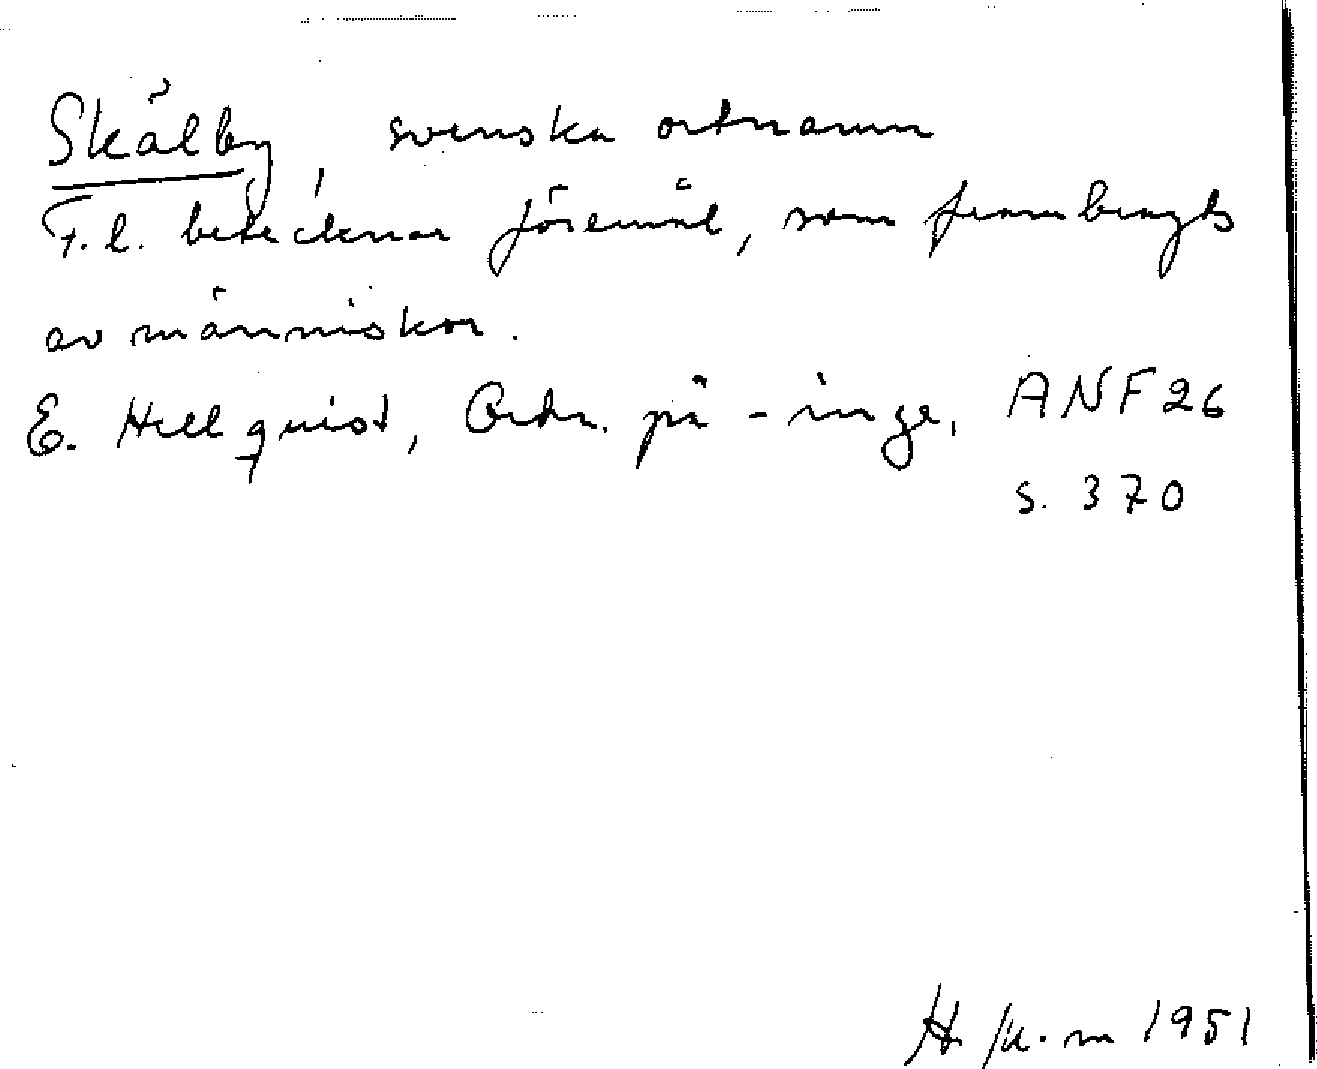 Skålby, svenska ortnamn
F.l. betecknar föremål, som frambragts
av människor.
E. Hellquist, Ortn. på -inge, ANF 26
s. 370
1951